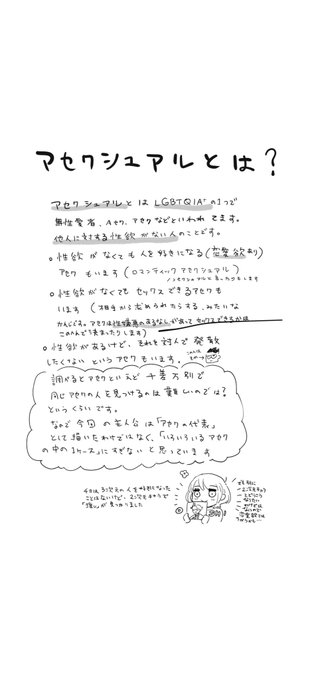 アセクシュアルとは?
アセクシュアルとは LGBTQIA⁺の1つで
無性愛者、Aセク、アセクなどといわれてます。
他人に対する性欲がない人のことです。
○ 性欲がなくても人を好きになる(恋愛欲あり)
アセクもいます(ロマンティックアセクシュアル)
○ 性欲がなくてもセックスできるアセクも
います(相手から求められたらする、みたいな
かんじです。アセクは性嫌悪のあるなしがあって セックスできるかは
このへんで決まったりします)
○ 性欲があるけど、それを対人で発散
したくないというアセクもいます。
調べるとアセクといえど千差万別で
同じアセクの人を見つけるのは難しいのでは?
というくらいです。
なので今回の主人公は「アセクの代表」
として描いたわけではなく、「いろいろいるアセク
の中の1ケース」にすぎないと思っています
チヨは、3次元の人を好きになった
ことはないけど、2次元キャラで
「推し」が見つかりました